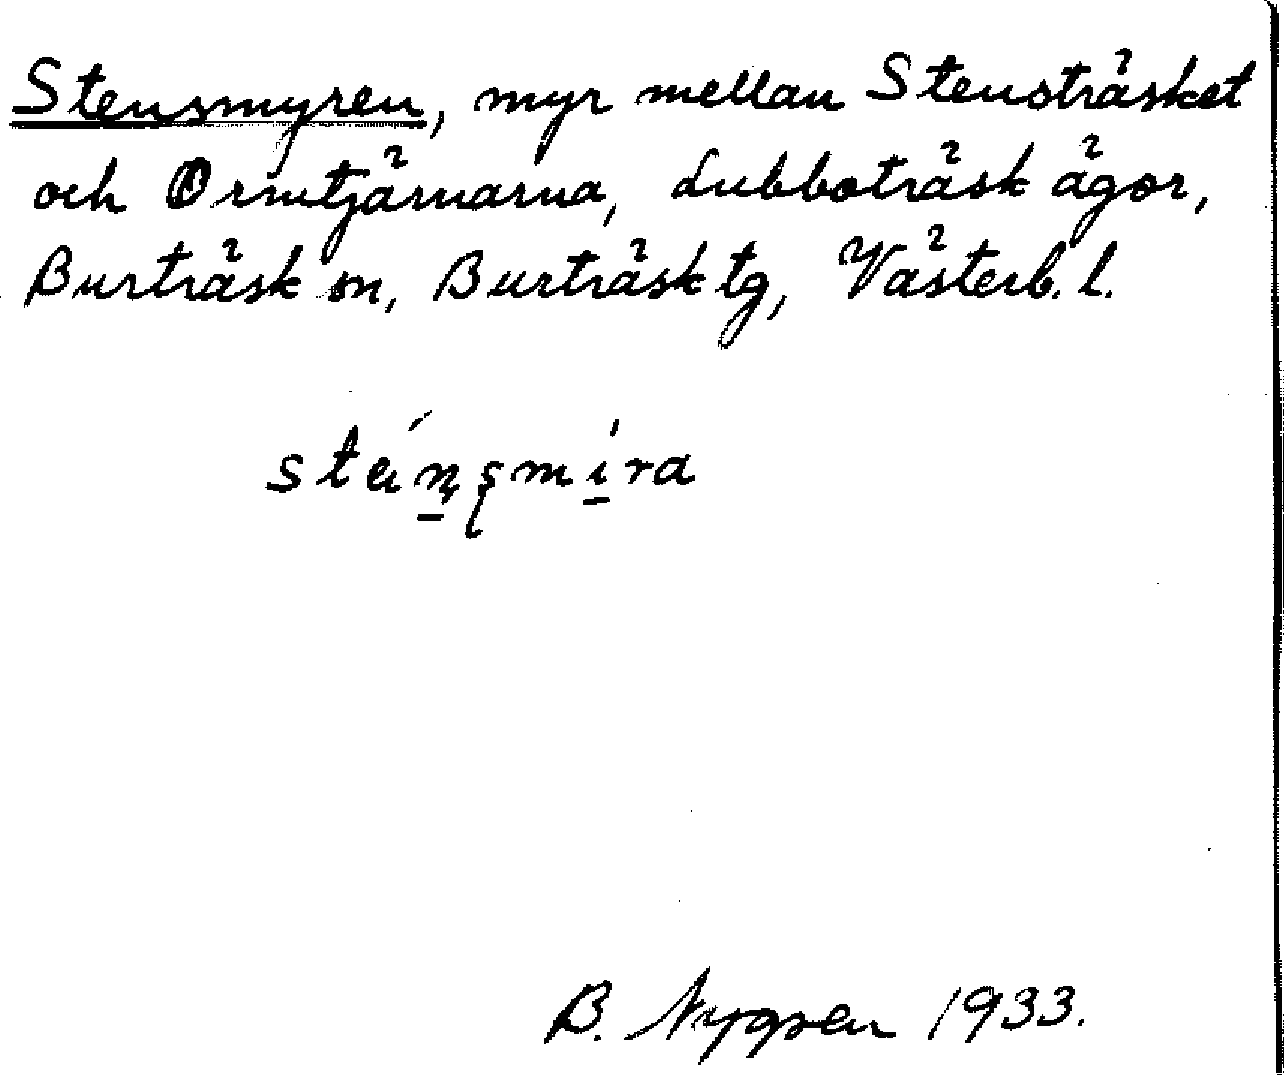 Stensmyren, myr mellan Stensträsket
och Ormtjärnarna, Lubboträsk ägor,
Burträsk sn, Burträsk tg, Västerb. l.
steínsmíra
B. Nygren 1933.